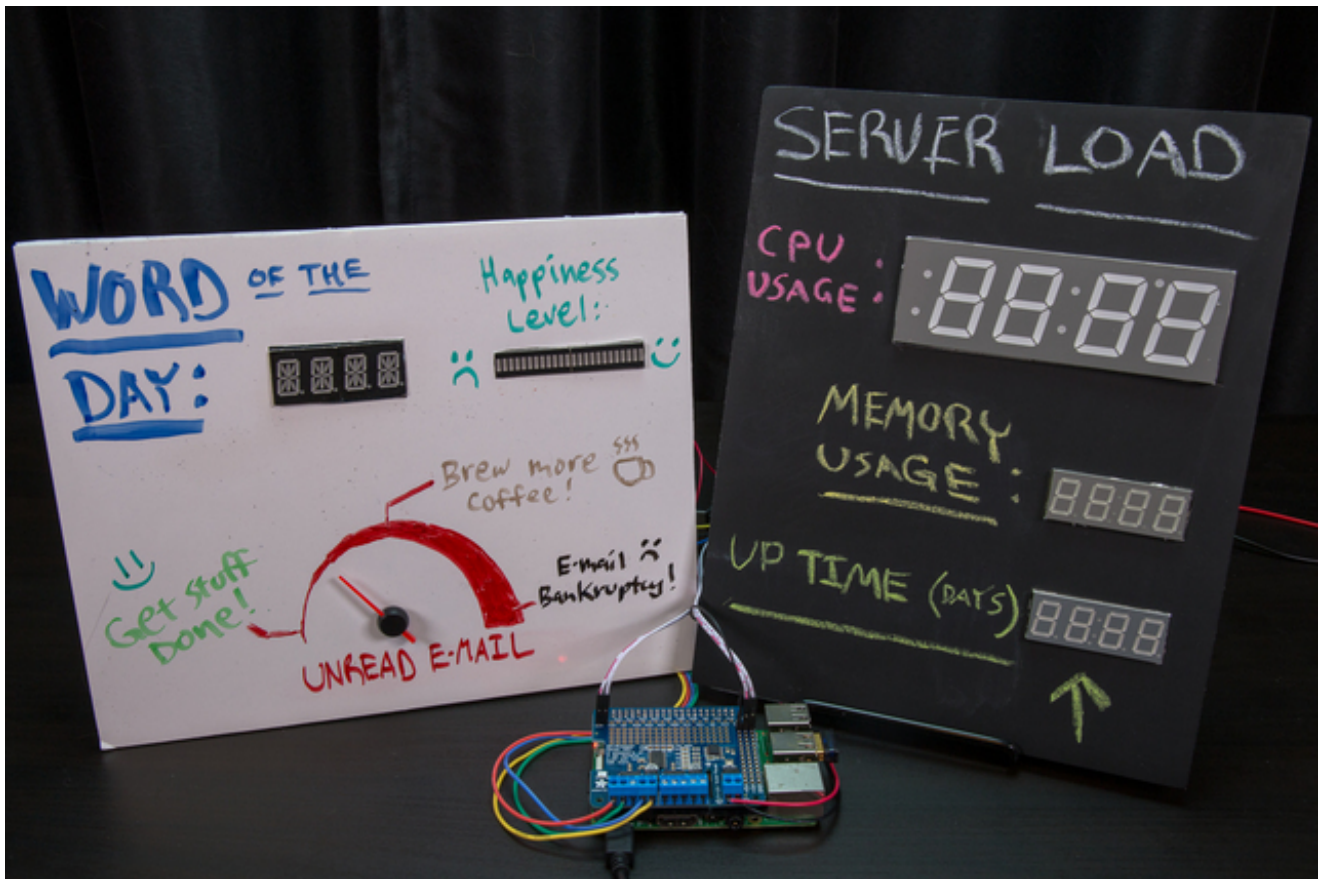 WORD OF THE
DAY:
Happiness
Level:
Brew more
coffee!
Get stuff
Done!
E-mail
Bankruptcy!
UNREAD E-MAIL
SERVER LOAD
CPU
USAGE:
MEMORY
USAGE:
UP TIME (DAYS)